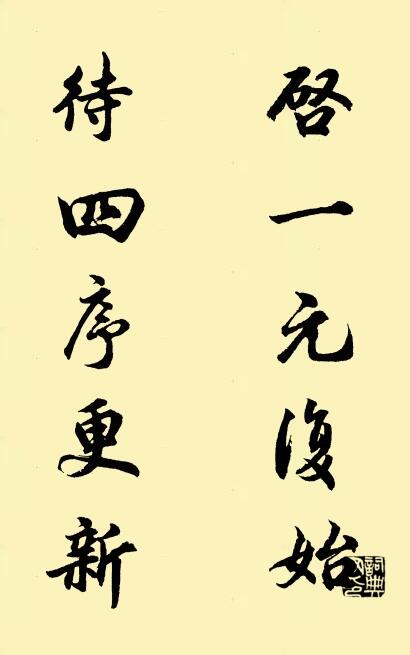 啓一元復始
待四序更新